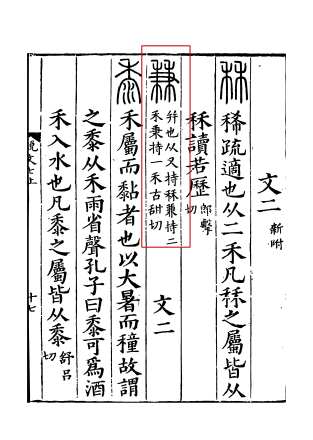 文二 新附
秝 稀疏適也从二禾凡秝之屬皆从
秝讀若歷 郎擊切
兼 幷也从又持秝兼持二
禾秉持一禾古甜切
文二
黍 禾屬而黏者也以大暑而穜故謂
之黍从禾雨省聲孔子曰黍可爲酒
禾入水也凡黍之屬皆从黍 舒呂切
說文七上
十七